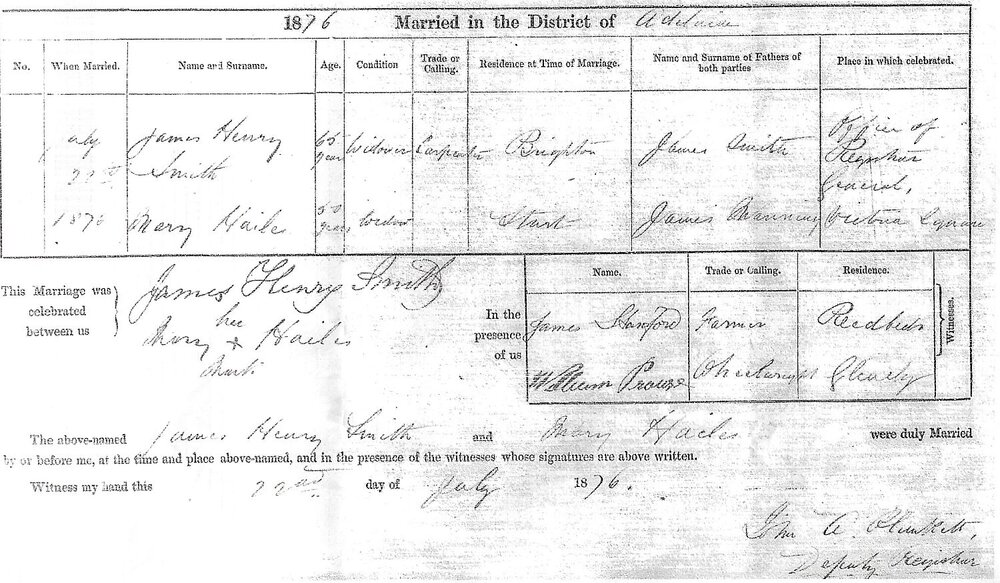 1876 Married in the District of Adelaide
No. When Married. Name and Surname. Age. Condition Trade or Calling. Residence at Time of Marriage. Name and Surname of Fathers of both parties Place in which celebrated.
July 22nd James Henry Smith 65 years Widower Carpenter Brighton James Smith Office of Registrar General,
1876 Mary Hailes 50 years Widow Sturt James Victoria Square
This Marriage was celebrated between us
James Henry Smith
her
Mary x Hailes
Mark
In the presence of us
Name. Trade or Calling. Residence.
James Farmer Reedbeds
William Prouse Wheelwright Glenelg
Witnesses.
The above-named James Henry Smith and Mary Hailes were duly Married
by or before me, at the time and place above-named, and in the presence of the witnesses whose signatures are above written.
Witness my hand this 22nd day of July 1876.
John
Deputy Registrar